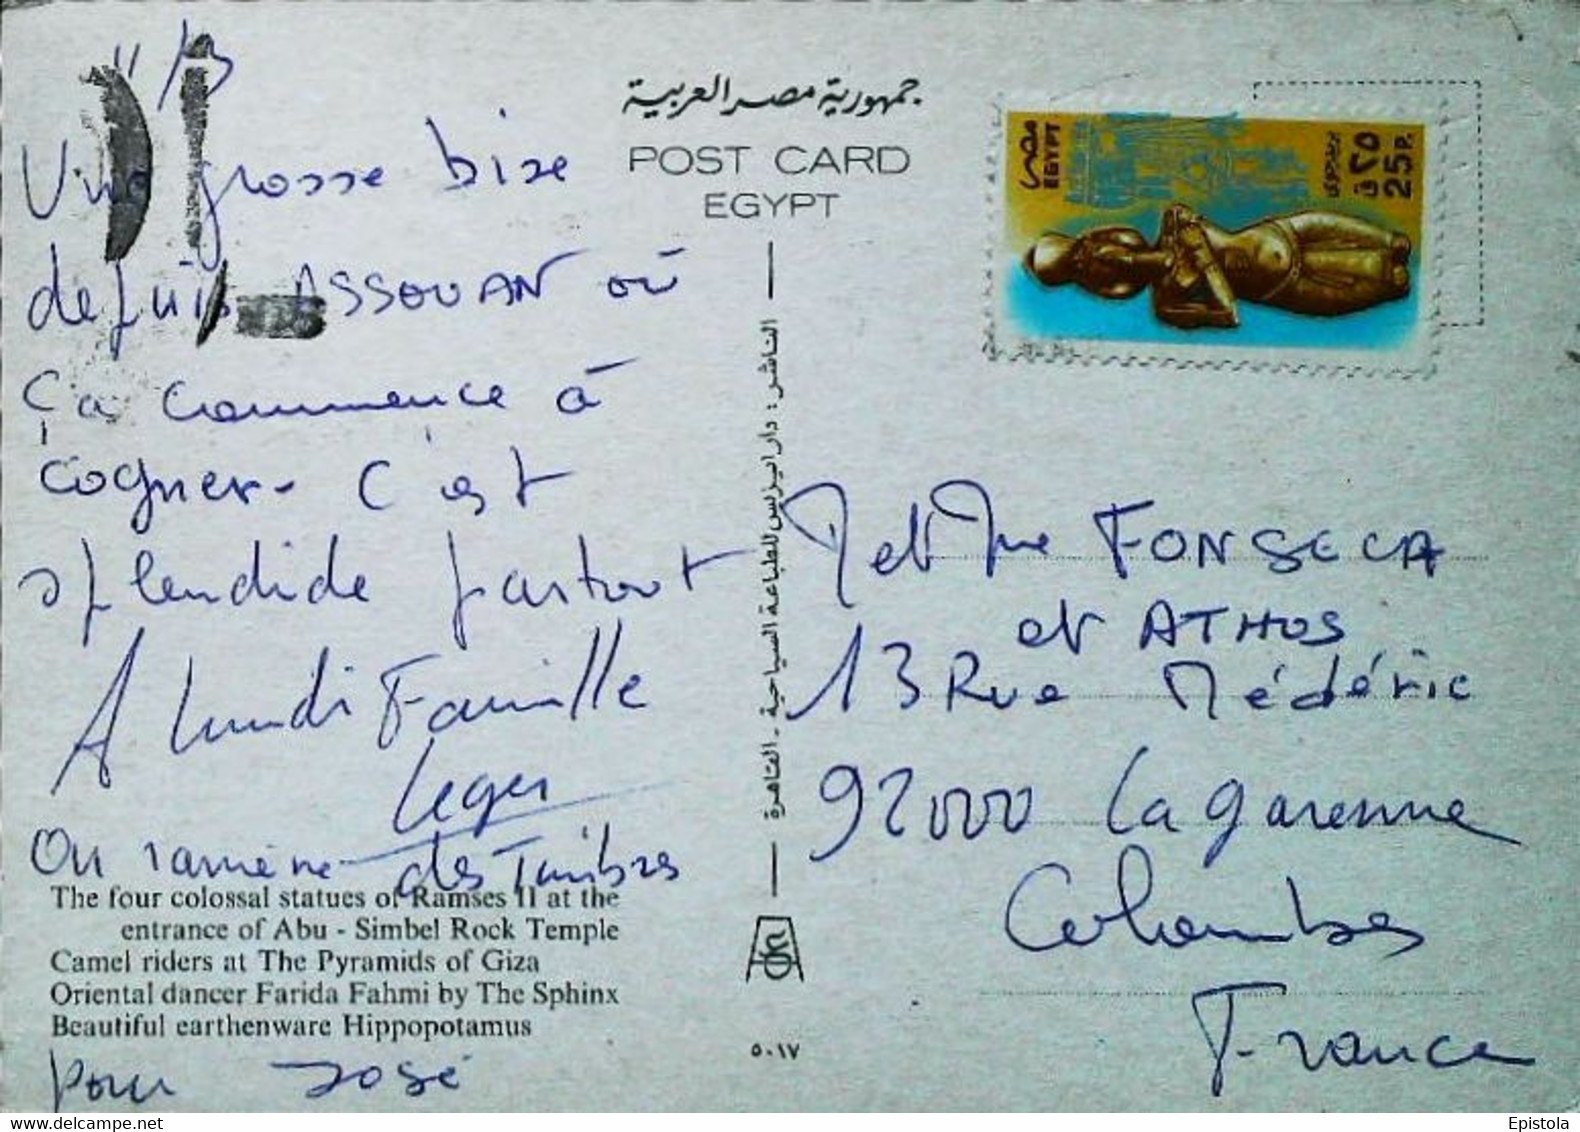 11/3
Une grosse bise
depuis ASSOUAN où
ça commence à
cogner. C'est
splendide partout
A lundi Famille
Leger
On ramène des Timbres
pour José
The four colossal statues of Ramses II at the
entrance of Abu - Simbel Rock Temple
Camel riders at The Pyramids of Giza
Oriental dancer Farida Fahmi by The Sphinx
Beautiful earthenware Hippopotamus
جمهورية مصر العربية
POST CARD
EGYPT
الناشر : دار ايزيس للطباعة السياحية - القاهرة
٥٠١٧
مصر
EGYPT
٢٥ ق
25 P.
M et Mme FONSECA
et ATHOS
13 Rue Médéric
92000 La Garenne
Colombes
France
Epistola